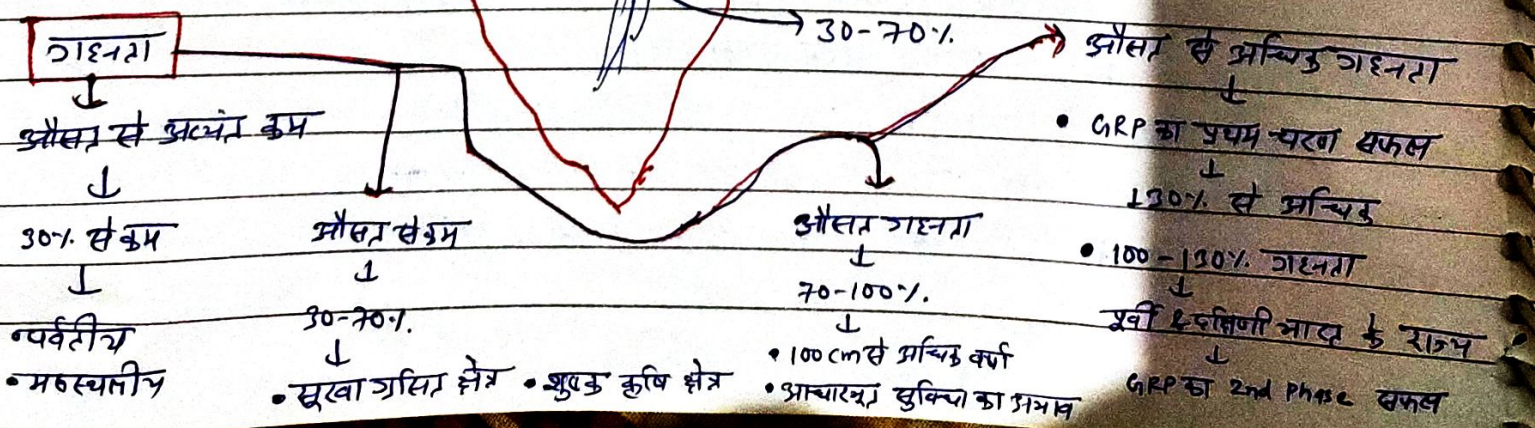 30-70%.
गहनता
औसत से अत्यंत कम
30% से कम
•पर्वतीय
•मरुस्थलीय
औसत से कम
30-70%.
•सूखा ग्रसित क्षेत्र •शुष्क कृषि क्षेत्र
औसत गहनता
70-100%.
•100cm से अधिक वर्षा
•आधारभूत सुविधा का अभाव
औसत से अधिक गहनता
• GRP का प्रथम चरण सफल
130% से अधिक
• 100-130% गहनता
पूर्वी & दक्षिणी भारत के राज्य
GRP का 2nd Phase सफल